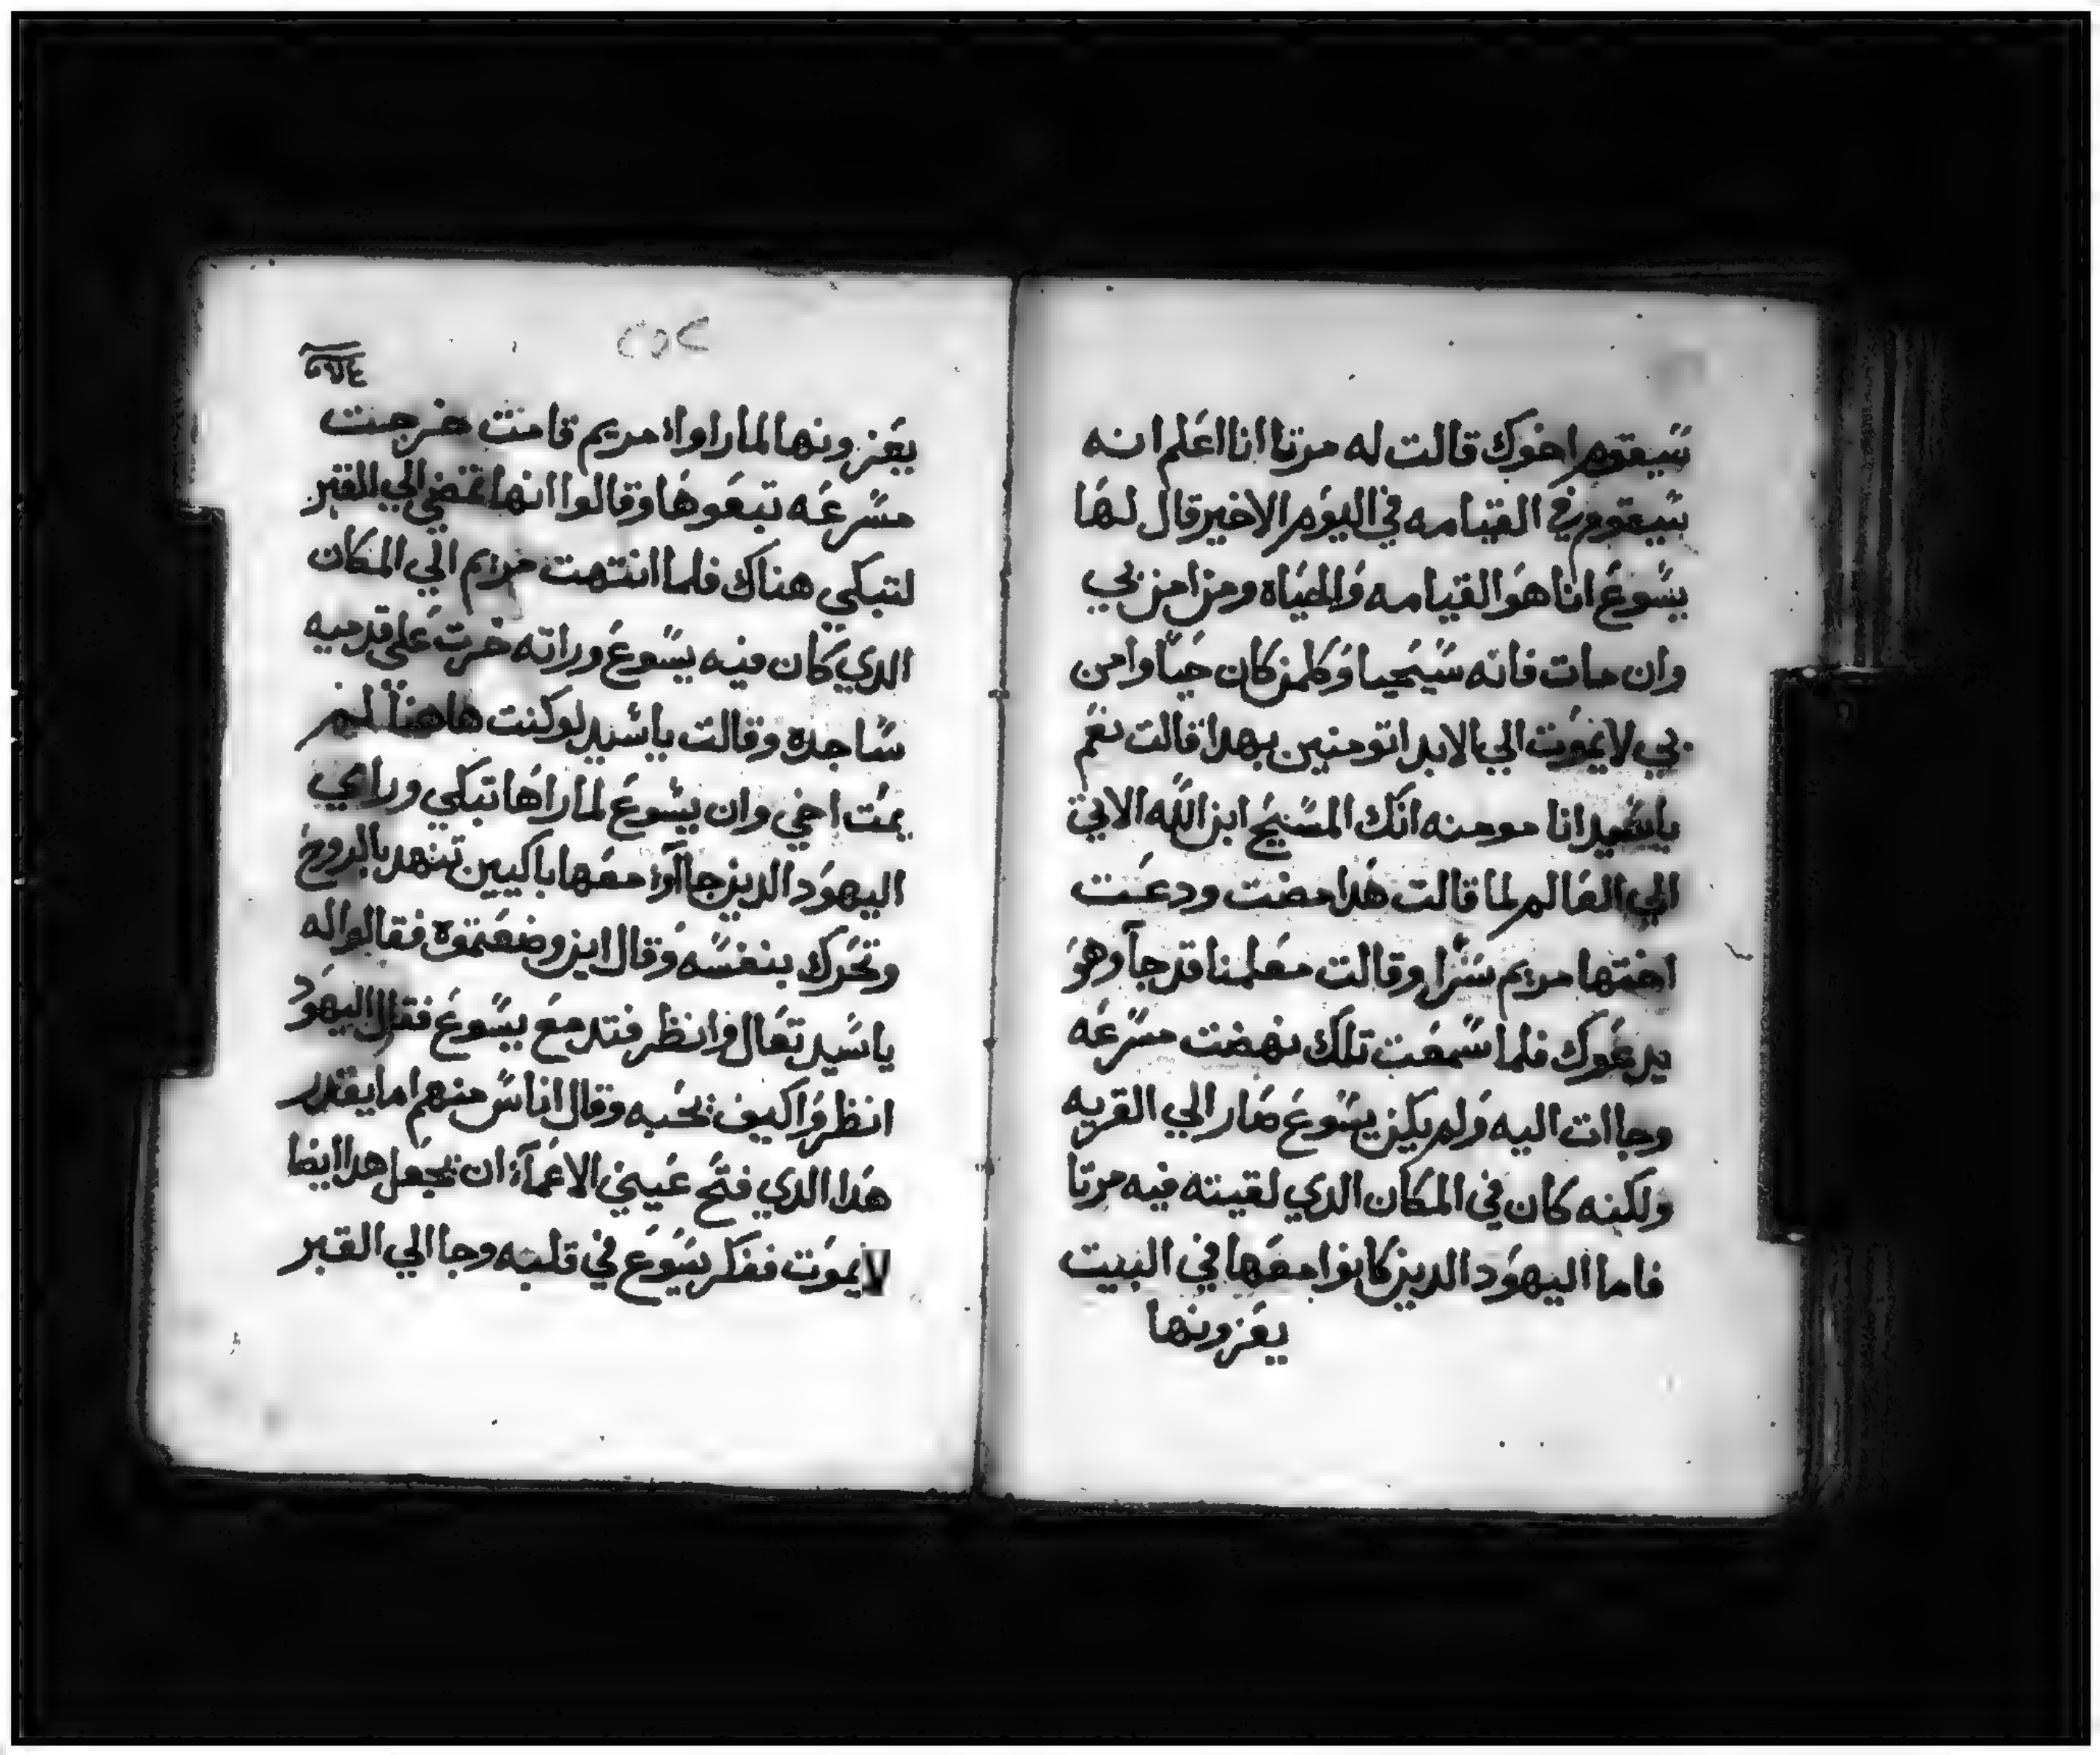 سيقوم اخوك قالت له مرتا انا اعلم انه
سيقوم في القيامه في اليوم الاخير قال لها
يسوع انا هو القيامه والحياه ومن امن بي
وان مات فانه سيحيا وكلمن كان حيا وامن
بي لا يموت الي الابد اتومنين بهدا قالت نعم
ياسيد انا مومنه انك المسيح ابن الله الاتي
الي العالم لما قالت هدا مضت ودعت
اختها مريم سرا وقالت معلمنا قد جا وهو
يدعوك فلما سمعت تلك نهضت مسرعه
وجاات اليه ولم يكن يسوع صار الي القريه
ولكنه كان في المكان الدي لقيته فيه مرتا
فاما اليهود الدين كانوا معها في البيت
يعزونها
٢٥٢
يعزونها لما راوا مريم قامت خرجت
مسرعه تبعوها وقالوا انها تمضي الي القبر
لتبكي هناك فلما انتهت مريم الي المكان
الدي كان فيه يسوع وراته خرت علي قدميه
ساجده وقالت ياسيد لو كنت هاهنا لم
يمت اخي وان يسوع لما راها تبكي وراي
اليهود الدين جاآوا معها باكيين تنهد بالروح
وتحرك بنفسه وقال اين وضعتموه فقالوا له
ياسيد تعال وانظر فتدمع يسوع فقال اليهود
انظروا كيف يحبه وقال اناس منهم اما يقدر
هدا الدي فتح عيني الاعمآ ان يجعل هدا ايضا
لا يموت ففكر يسوع في قلبه وجا الي القبر